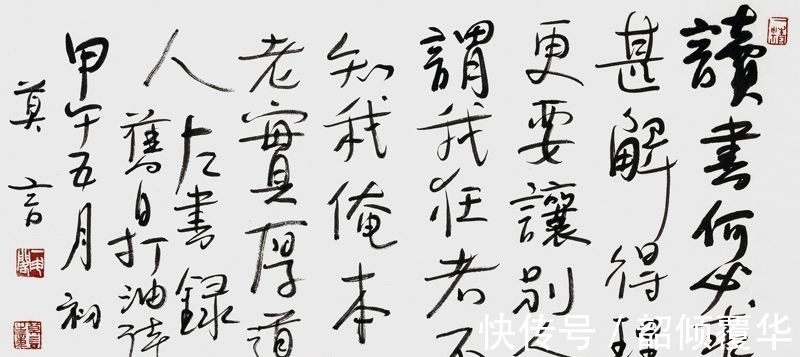 讀書何必
甚解得理
更要讓別人
謂我狂者不
知我俺本
老實厚道
人左書錄
舊自打油詩
甲午五月初
莫言
快传号 / 韶倾覆华